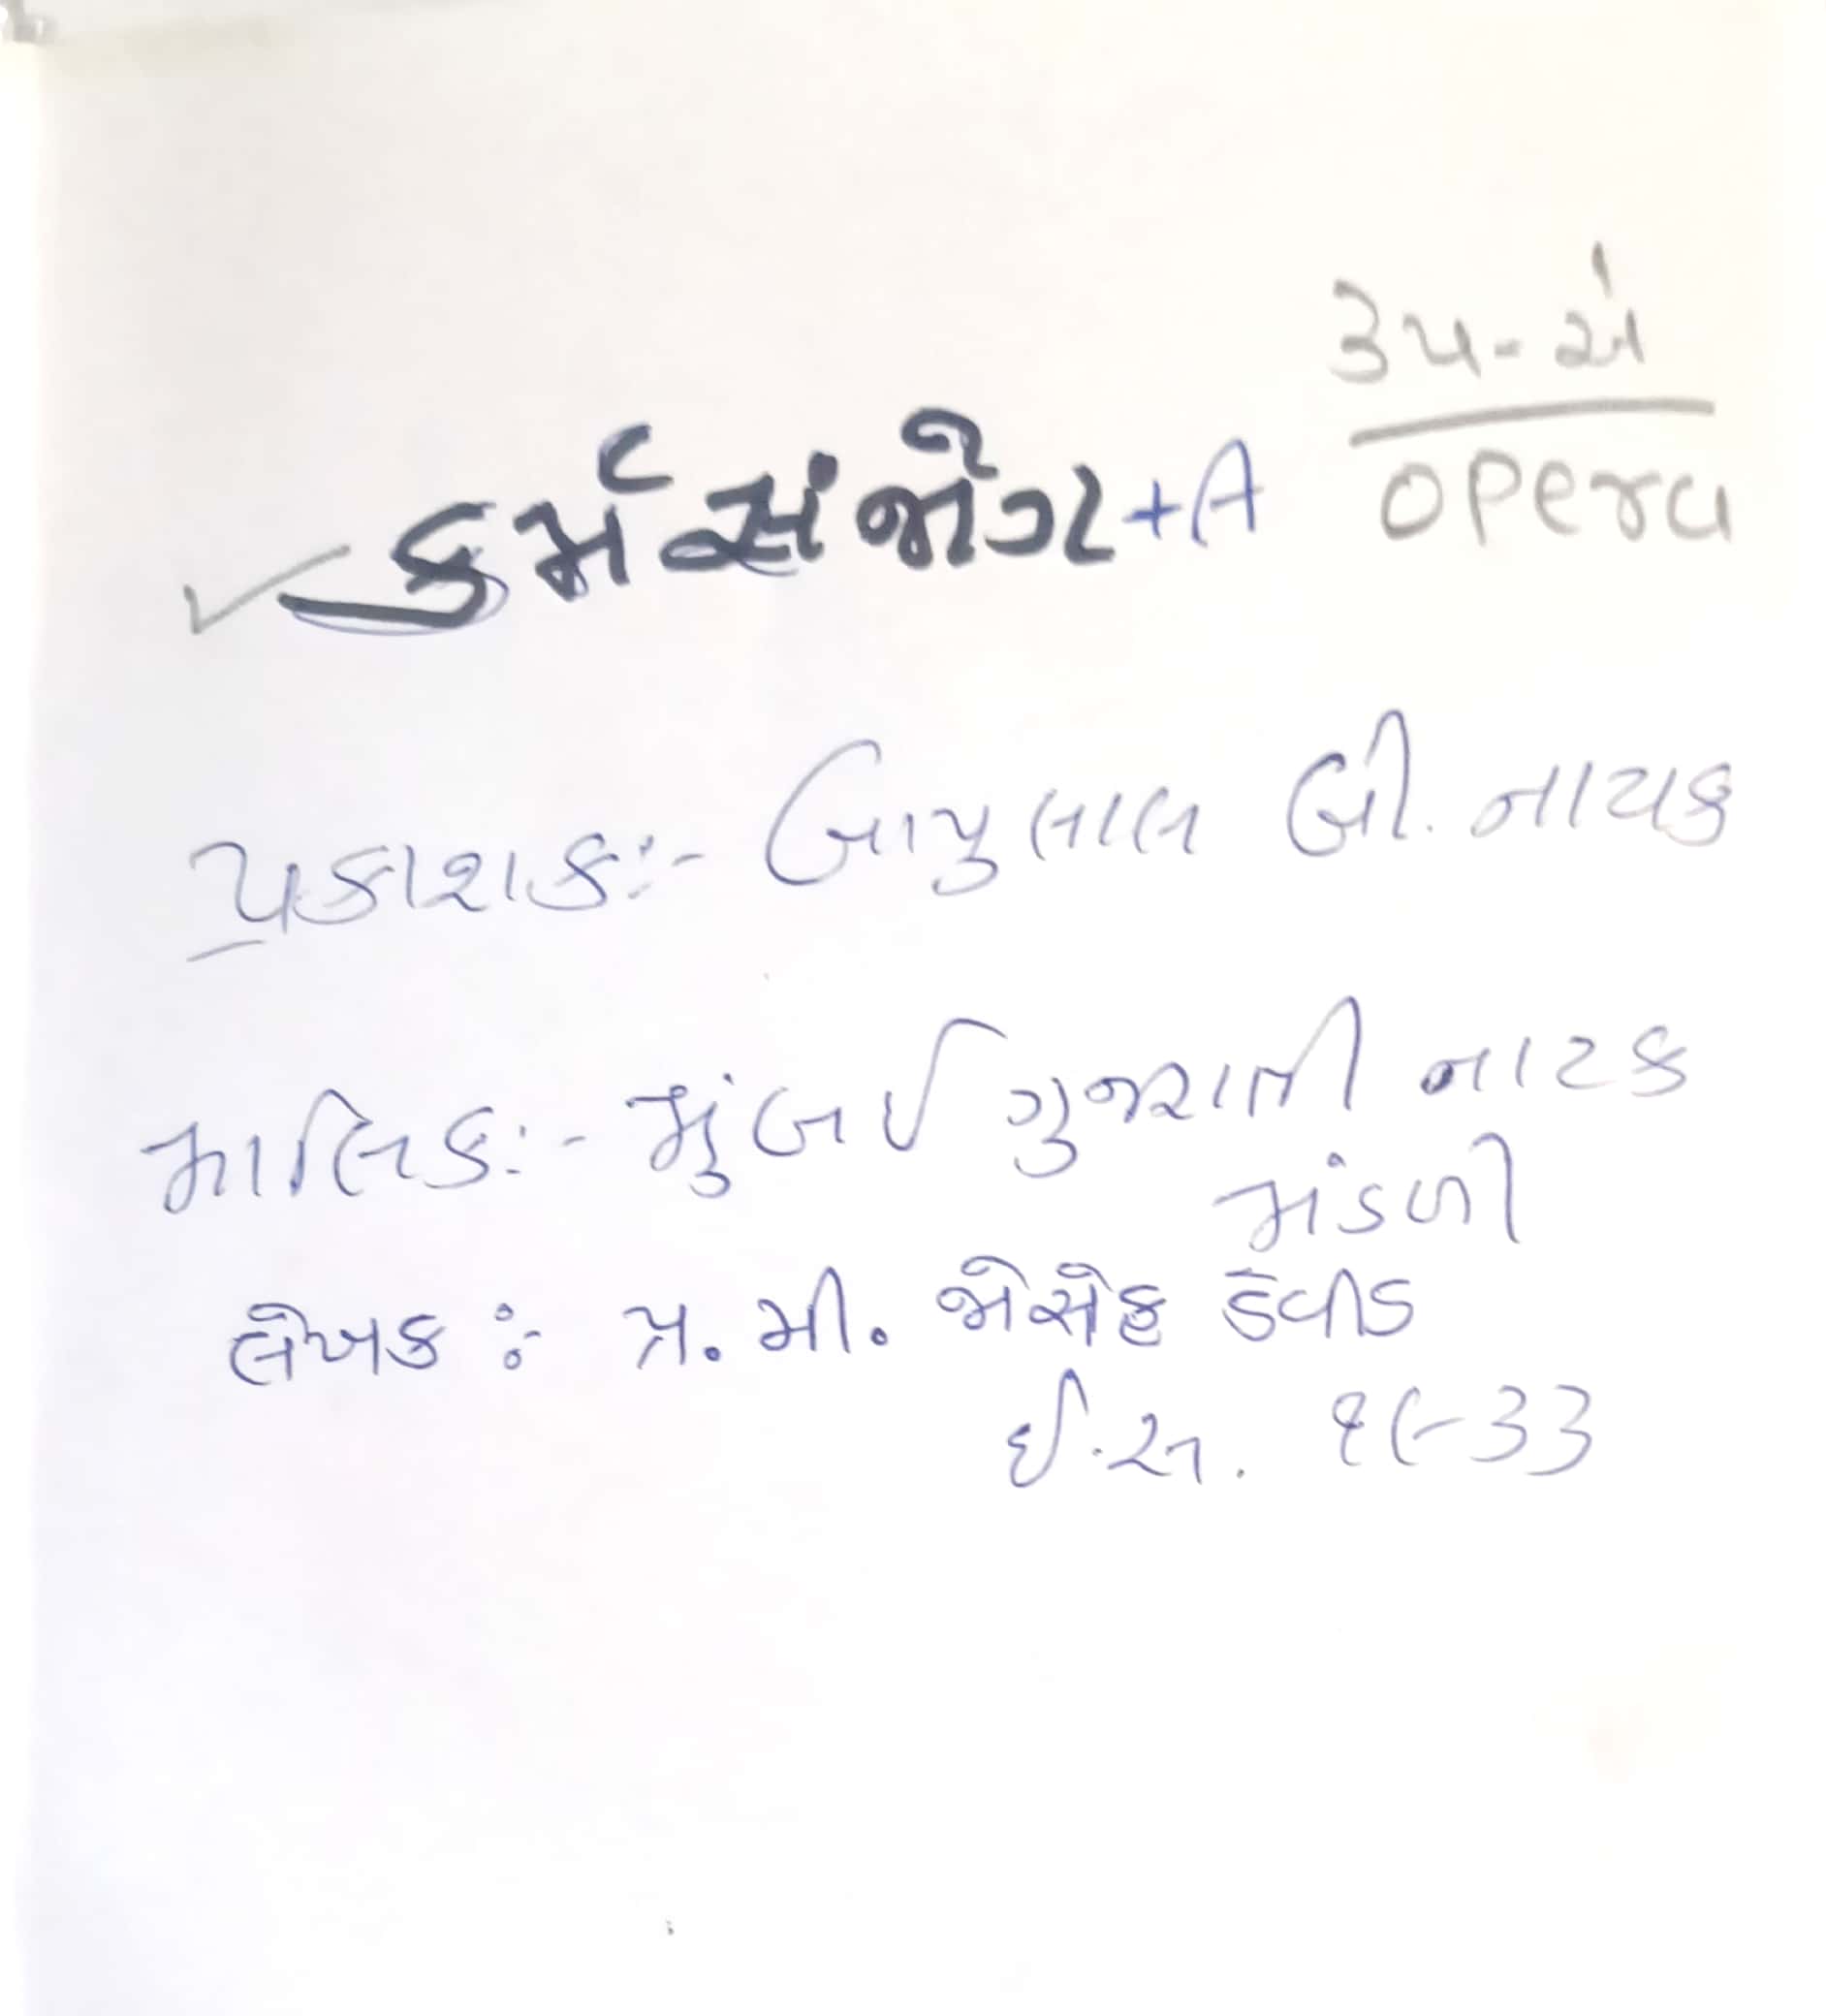 ૩૫-એ
opera
કર્મ સંજોગ +A
પ્રકાશક:- બાપુલાલ બી. નાયક
માલિક:- મુંબઈ ગુજરાતી નાટક
મંડળી
લેખક :- પ્ર. મી. જોસેફ ડેવીડ
ઈ.સ. ૧૯૩૩